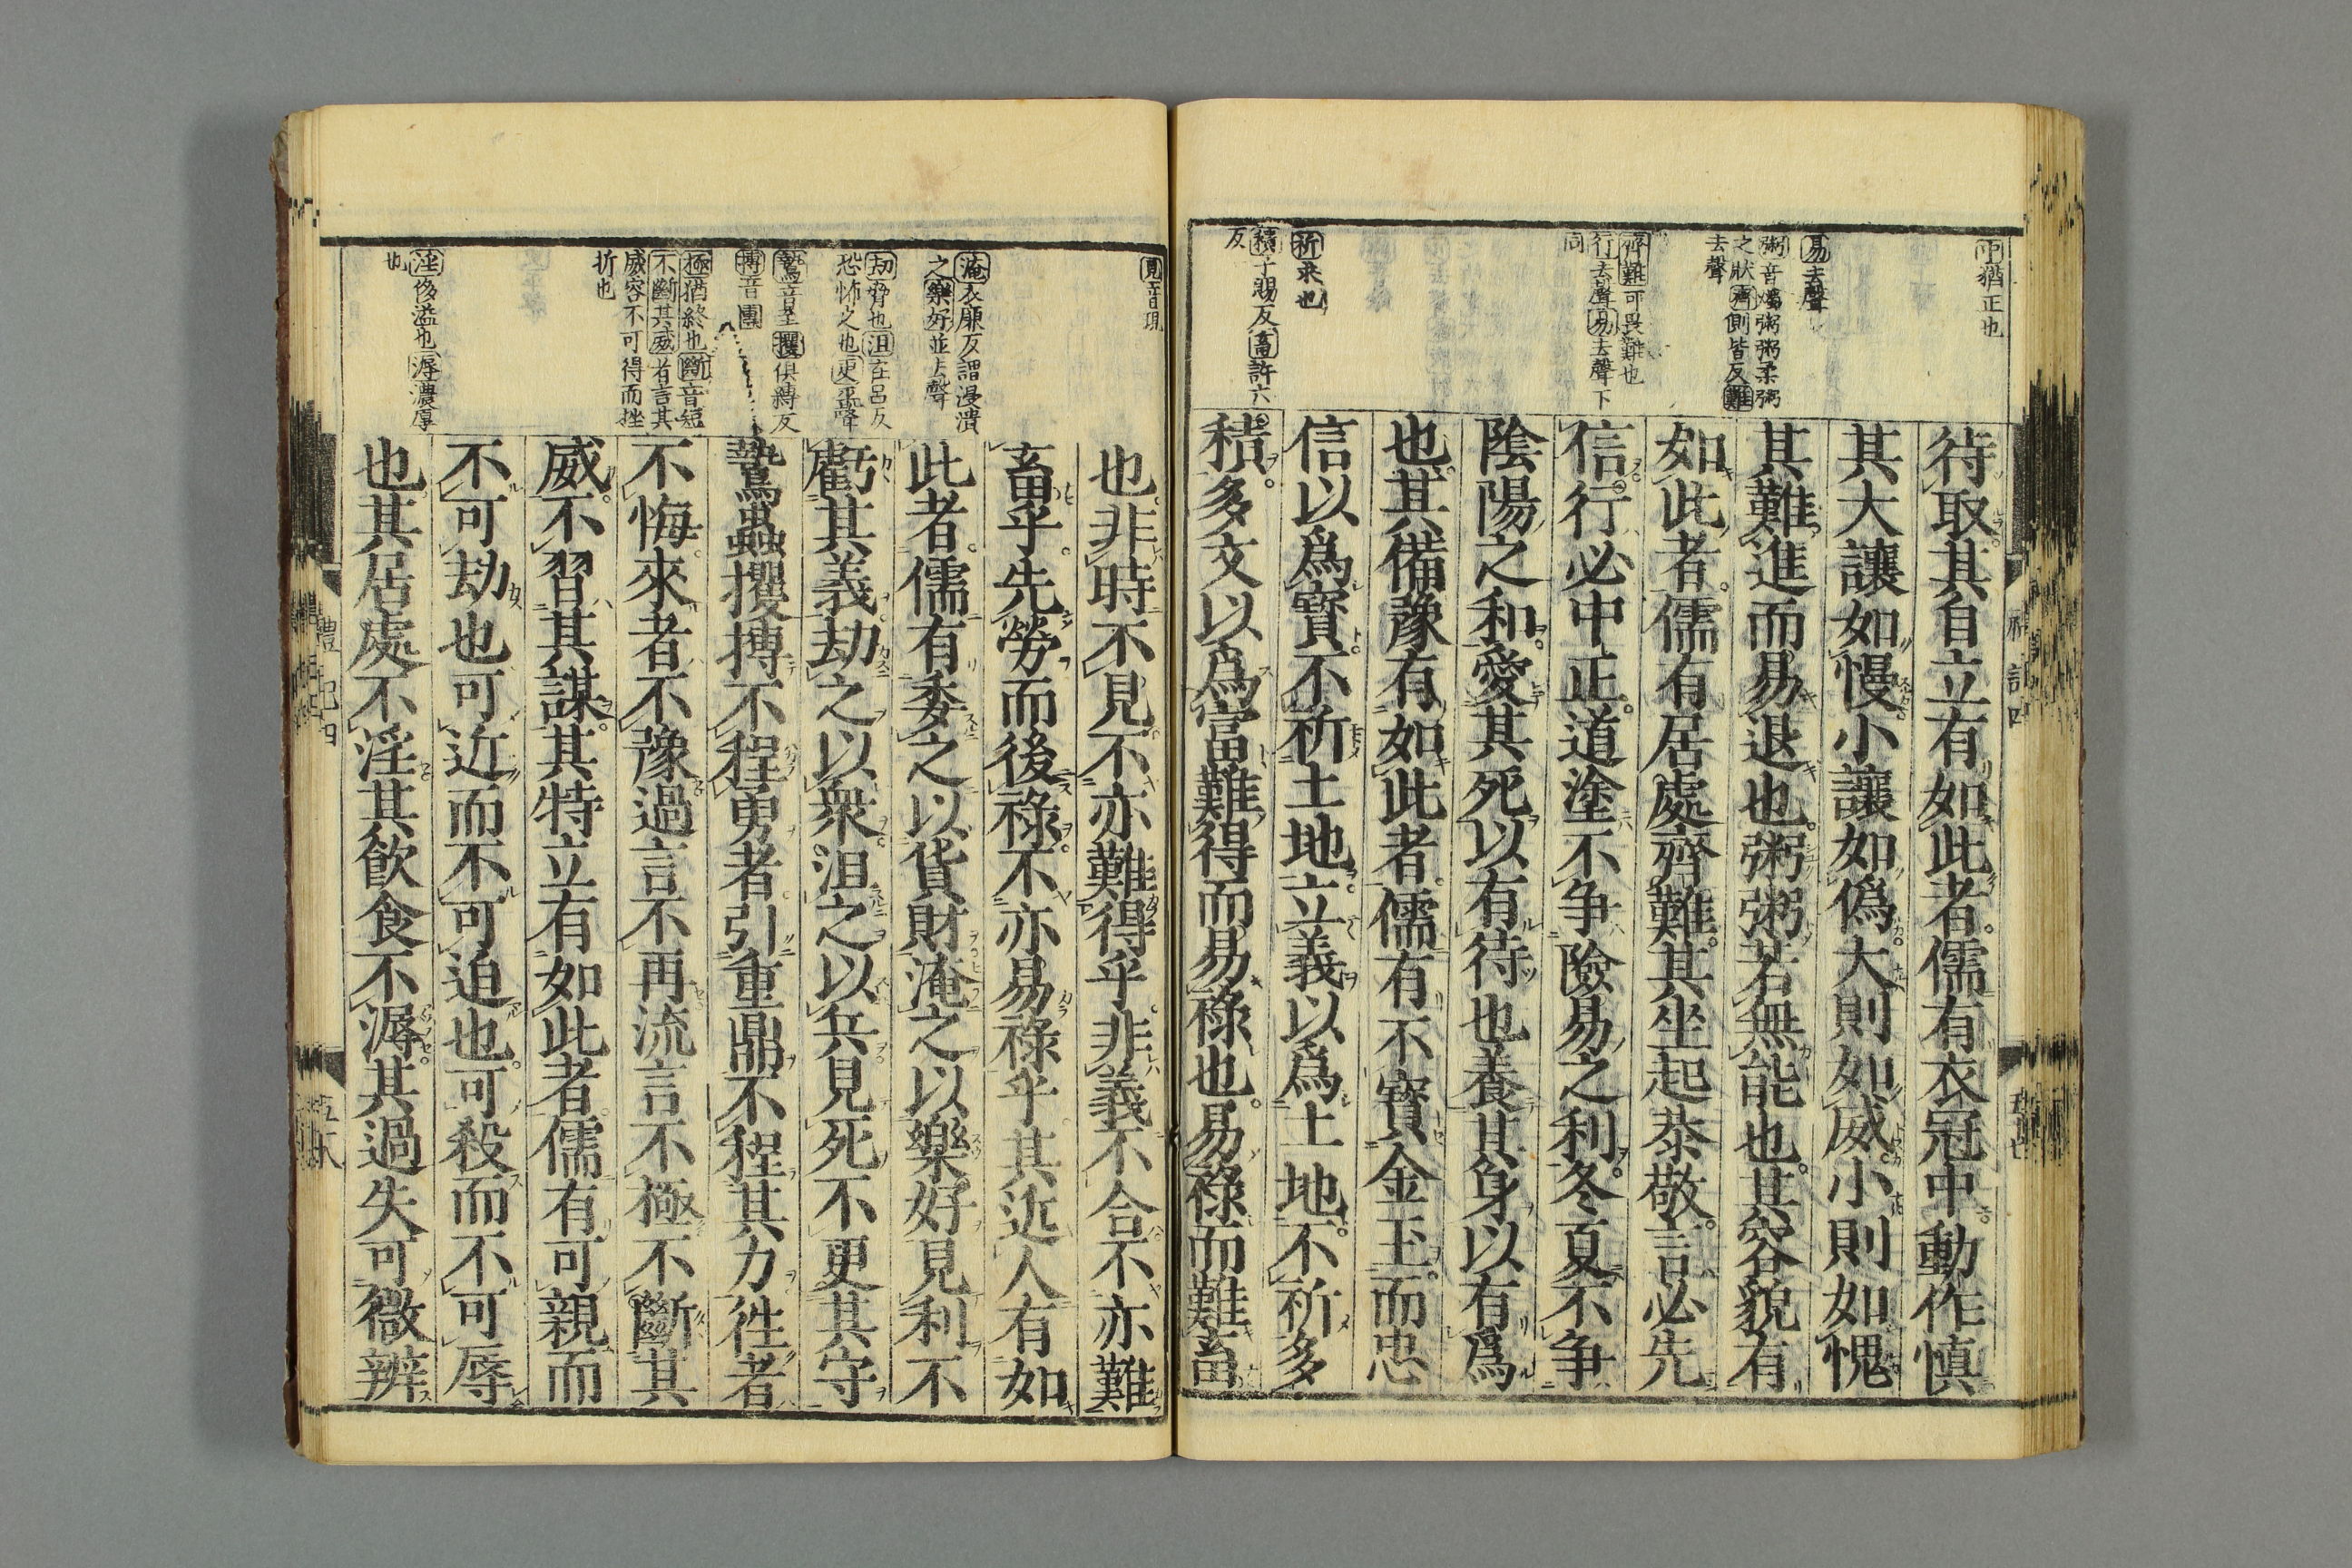 中猶正也
易去聲
粥音燭粥粥柔粥
之狀齊側皆反難
去聲
齊難可畏難也
行去聲易去聲下
同
祈求也
積子賜反畜許六
反
待取其自立有如此者儒有衣冠中動作慎
其大讓如慢小讓如僞大則如威小則如愧
其難進而易退也粥粥若無能也其容貌有
如此者儒有居處齊難其坐起恭敬言必先
信行必中正道塗不争險易之利冬夏不争
陰陽之和愛其死以有待也養其身以有爲
也其備豫有如此者儒有不寳金玉而忠
信以爲寳不祈土地立義以爲土地不祈多
積多文以爲富難得而易祿也易祿而難畜
見音現
淹衣廉反謂浸漬
之樂好並去聲
劫脅也沮在呂反
恐怖之也更平聲
鷙音至攫俱縛反
搏音團
極猶終也斷音短
不斷其威者言其
威容不可得而挫
折也
淫侈溢也溽濃厚
也
也非時不見不亦難得乎非義不合不亦難
畜乎先勞而後祿不亦易祿乎其近人有如
此者儒有委之以貨財淹之以樂好見利不
虧其義劫之以衆沮之以兵見死不更其守
鷙蟲攫搏不程勇者引重鼎不程其力徃者
不悔來者不豫過言不再流言不極不斷其
威不習其謀其特立有如此者儒有可親而
不可劫也可近而不可迫也可殺而不可辱
也其居處不淫其飲食不溽其過失可微辨
禮記四